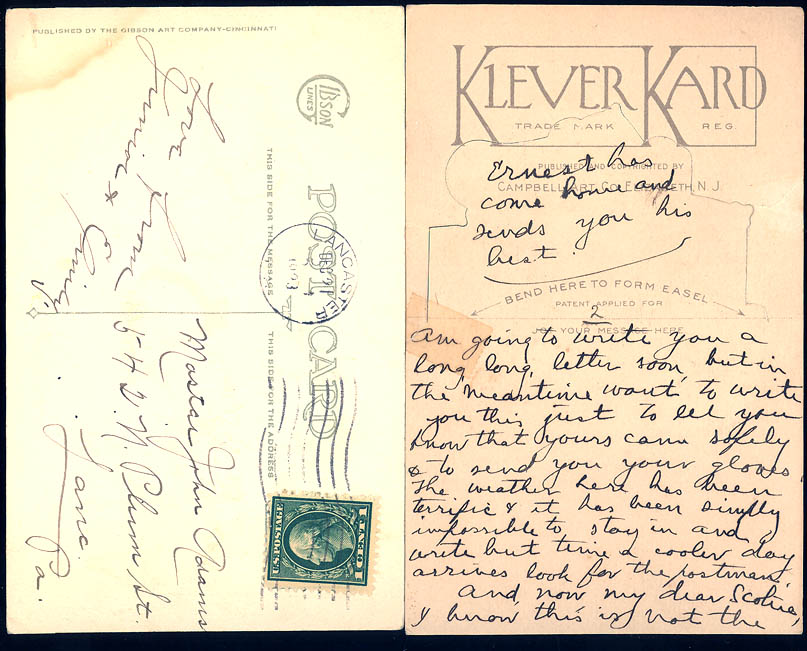 PUBLISHED BY THE GIBSON ART COMPANY-CINCINNATI
GIBSON
LINES
POST CARD
THIS SIDE FOR THE MESSAGE
THIS SIDE FOR THE ADDRESS
Love from
Junior &
LANCASTER
PA
U.S. POSTAGE
1 CENT 1
Master John Adams
542 N. Plum St.
Lanc.
Pa.
KLEVER KARD
TRADE MARK REG.
PUBLISHED AND COPYRIGHTED BY
CAMPBELL ART CO. ELIZABETH, N.J.
Ernest has
come home and
sends you his
best.
BEND HERE TO FORM EASEL
PATENT APPLIED FOR
2
JOT YOUR MESSAGE HERE
Am going to write you a
long, long, letter soon, but in
the meantime want to write
you this just to let you
know that yours came safely
& to send you your gloves.
The weather here has been
terrific & it has been simply
impossible to stay in and
write but time a cooler day
arrives look for the postman.
And now my dear Scotia,
I know this is not the